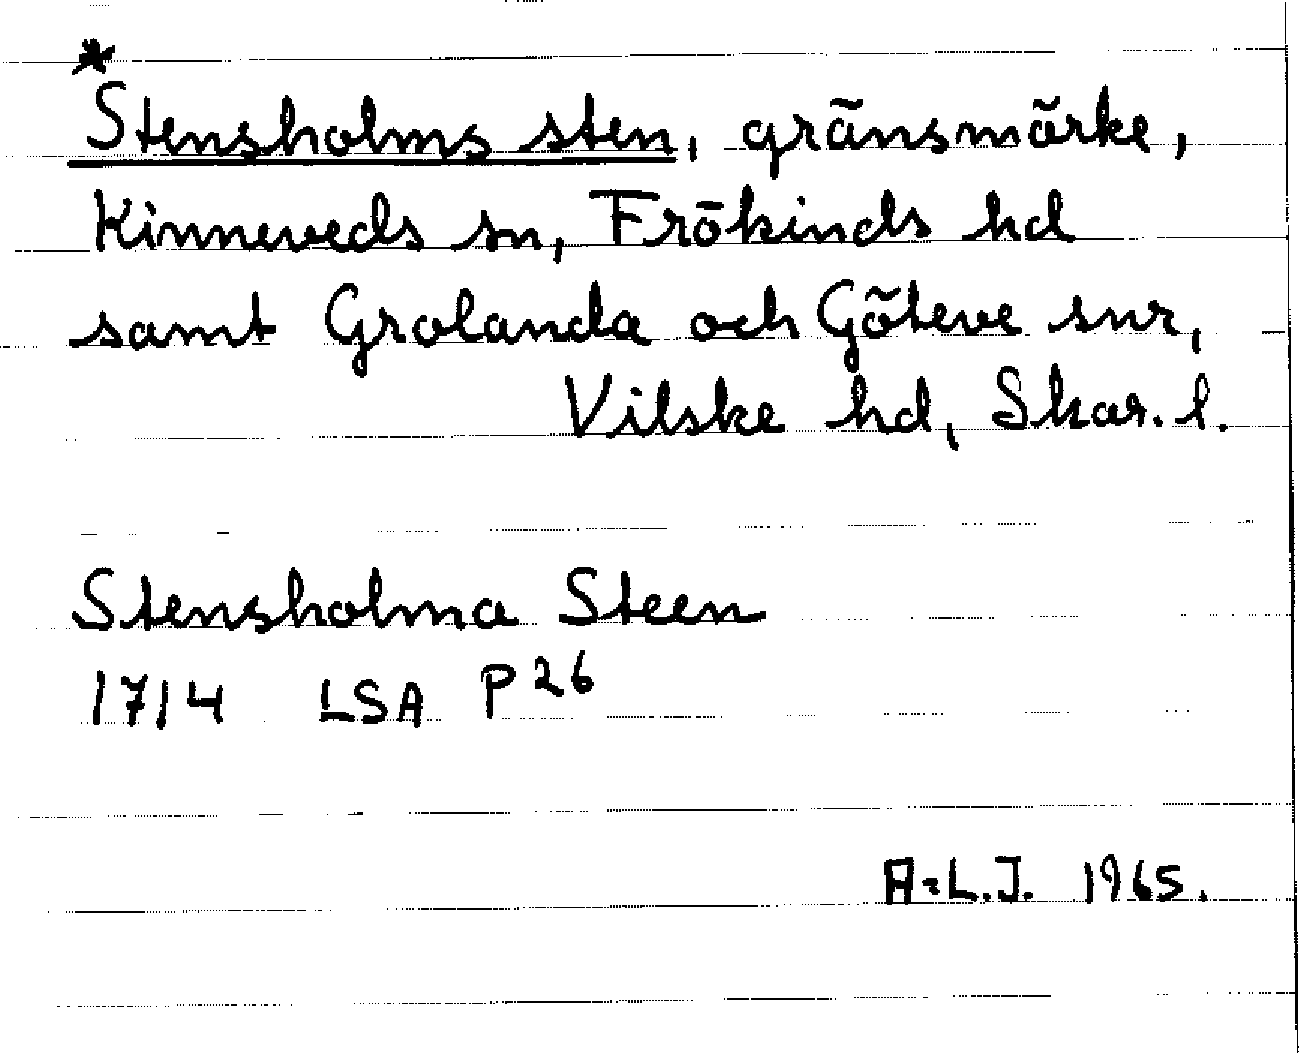 *
Stensholms sten, gränsmärke,
Kinneveds sn, Frökinds hd
samt Grolanda och Göteve snr,
Vilske hd, Skar. l.
Stensholma Steen
1714 LSA P 26
A-L.J. 1965.